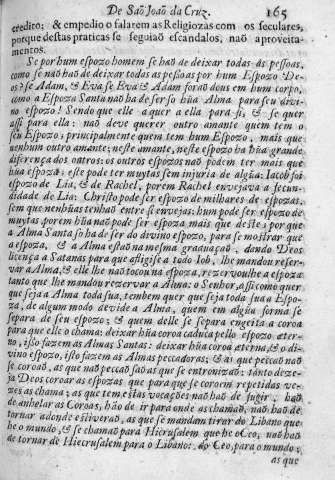 De Saõ Joaõ da Cruz. 165
credito: & empedio o falarem as Religiozas com os seculares,
porque destas praticas se seguiaõ escandalos, naõ aproveita-
mentos.
Se por hum espozo homem se haõ de deixar todas as pessoas,
como se naõ haõ de deixar todas as pessoas por hum Espozo De-
os? se Adam, & Eva se Eva & Adam foraõ dous em hum corpo,
como a Espoza Santa naõ ha de ser so hũa Alma para seu divi-
no esposo! Sendo que elle a quer a ella para si; & se quer
assi para ella: naõ deve querer outro amante quem tem o
seu Espozo; principalmente quem tem hum Espozo, mais que
nenhum outro amante; neste amante, neste esposo ha hũa grande
diferença dos outros: os outros espozos naõ podem ter mais que
hũa espoza: este pode ter muytas sem injuria de algũa: Iacob foi
espozo de Lia, & de Rachel, porem Rachel envejava a fecun-
didade de Lia: Christo pode ser espozo de milhares de espozas,
sem que nenhũas tenhaõ entre si envejas: hum pode ser espozo de
muytas porem hũa naõ pode ser espoza mais que deste: por que
a Alma Santa so ha de ser do divino espozo, para se mostrar que
a espoza, & a Alma estaõ na mesma graduaçaõ, dando Deos
licença a Satanas para que afligise a todo Iob, lhe mandou reser-
var a Alma, & elle lhe naõ tocou na espoza, rezervoulhe a espoza
tanto que lhe mandou rezervar a Alma: o Senhor, assi como quer
que seja a Alma toda sua, tembem quer que seja toda sua a Espo-
za, de algum modo devide a Alma, quem em algũa forma se
separa de seu espozo; & quem delle se separa engeita a coroa
para que elle o chama: deixar hũa coroa caduca pello espozo eter-
no, isso fazem as Almas Santas: deixar hũa coroa eterna, & o di-
vino espozo, isso fazem as Almas peccadoras; & ai que peccaõ naõ
se coroaõ, as que naõ peccaõ sabaõ que se entronizaõ: tanto deze-
ja Deos coroar as espozas que para que se coroem repetidas ve-
zes as chama; as que tem estas vocações naõ haõ de fugir, haõ
de anhelar as Coroas, haõ de ir para onde as chamaõ, naõ haõ de
tornar adonde estiveraõ, as que se mandam tirar do Libano que
he o mundo, & se chamaõ para Hierusalem que he o Ceo, naõ haõ
de tornar de Hierusalem para o Libano: do Ceo, para o mundo;
as que